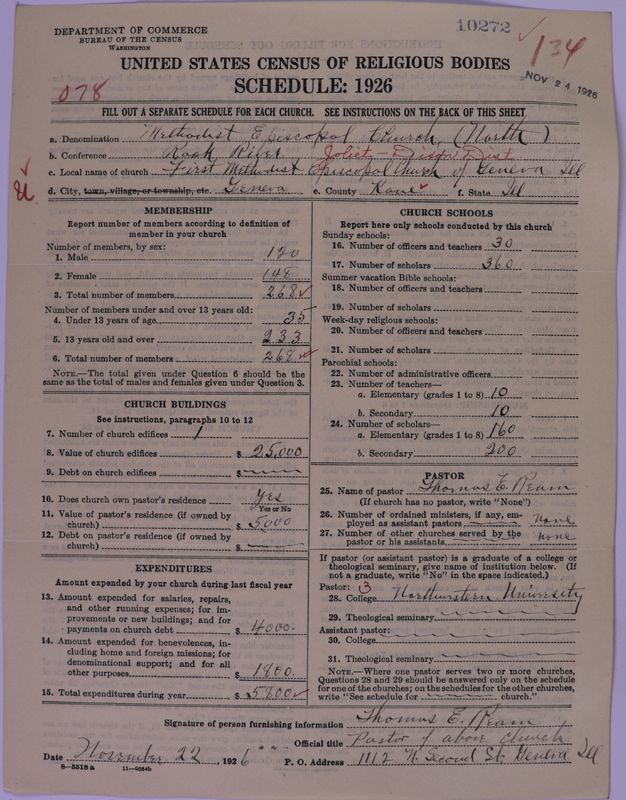 DEPARTMENT OF COMMERCE
BUREAU OF THE CENSUS
WASHINGTON
10272
134
NOV 24 1926
UNITED STATES CENSUS OF RELIGIOUS BODIES
SCHEDULE: 1926
078
FILL OUT A SEPARATE SCHEDULE FOR EACH CHURCH. SEE INSTRUCTIONS ON THE BACK OF THIS SHEET
a. Denomination Methodist Episcopal Church, (North)
b. Conference Rock River Joliet Dixon Dist
c. Local name of church First Methodist Episcopal Church of Geneva Ill
d. City, town, village, or township, etc. Geneva e. County Kane f. State Ill
MEMBERSHIP
Report number of members according to definition of member in your church
Number of members, by sex:
1. Male 120
2. Female 148
3. Total number of members 268
Number of members under and over 13 years old:
4. Under 13 years of age 35
5. 13 years old and over 233
6. Total number of members 268
NOTE.—The total given under Question 6 should be the same as the total of males and females given under Question 3.
CHURCH BUILDINGS
See instructions, paragraphs 10 to 12
7. Number of church edifices 1
8. Value of church edifices $ 25,000
9. Debt on church edifices $
10. Does church own pastor's residence Yes
Yes or No
11. Value of pastor's residence (if owned by church) $ 5000
12. Debt on pastor's residence (if owned by church) $
EXPENDITURES
Amount expended by your church during last fiscal year
13. Amount expended for salaries, repairs, and other running expenses; for improvements or new buildings; and for payments on church debt $ 4000.
14. Amount expended for benevolences, including home and foreign missions; for denominational support; and for all other purposes $ 1800.
15. Total expenditures during year $ 5800
CHURCH SCHOOLS
Report here only schools conducted by this church
Sunday schools:
16. Number of officers and teachers 30
17. Number of scholars 360
Summer vacation Bible schools:
18. Number of officers and teachers
19. Number of scholars
Week-day religious schools:
20. Number of officers and teachers
21. Number of scholars
Parochial schools:
22. Number of administrative officers
23. Number of teachers—
a. Elementary (grades 1 to 8) 10
b. Secondary 10
24. Number of scholars—
a. Elementary (grades 1 to 8) 160
b. Secondary 200
PASTOR
25. Name of pastor Thomas E. Ream
(If church has no pastor, write "None")
26. Number of ordained ministers, if any, employed as assistant pastors none
27. Number of other churches served by the pastor or his assistants none
If pastor (or assistant pastor) is a graduate of a college or theological seminary, give name of institution below. (If not a graduate, write "No" in the space indicated.)
Pastor: 3
28. College Northwestern University
29. Theological seminary
Assistant pastor:
30. College
31. Theological seminary
NOTE.—Where one pastor serves two or more churches, Questions 28 and 29 should be answered only on the schedule for one of the churches; on the schedules for the other churches, write "See schedule for church."
Signature of person furnishing information Thomas E. Ream
Official title Pastor of above Church
Date November 22, 1926 P. O. Address 111 2 N. Second St. Geneva Ill
8—5518 a 11—9084b